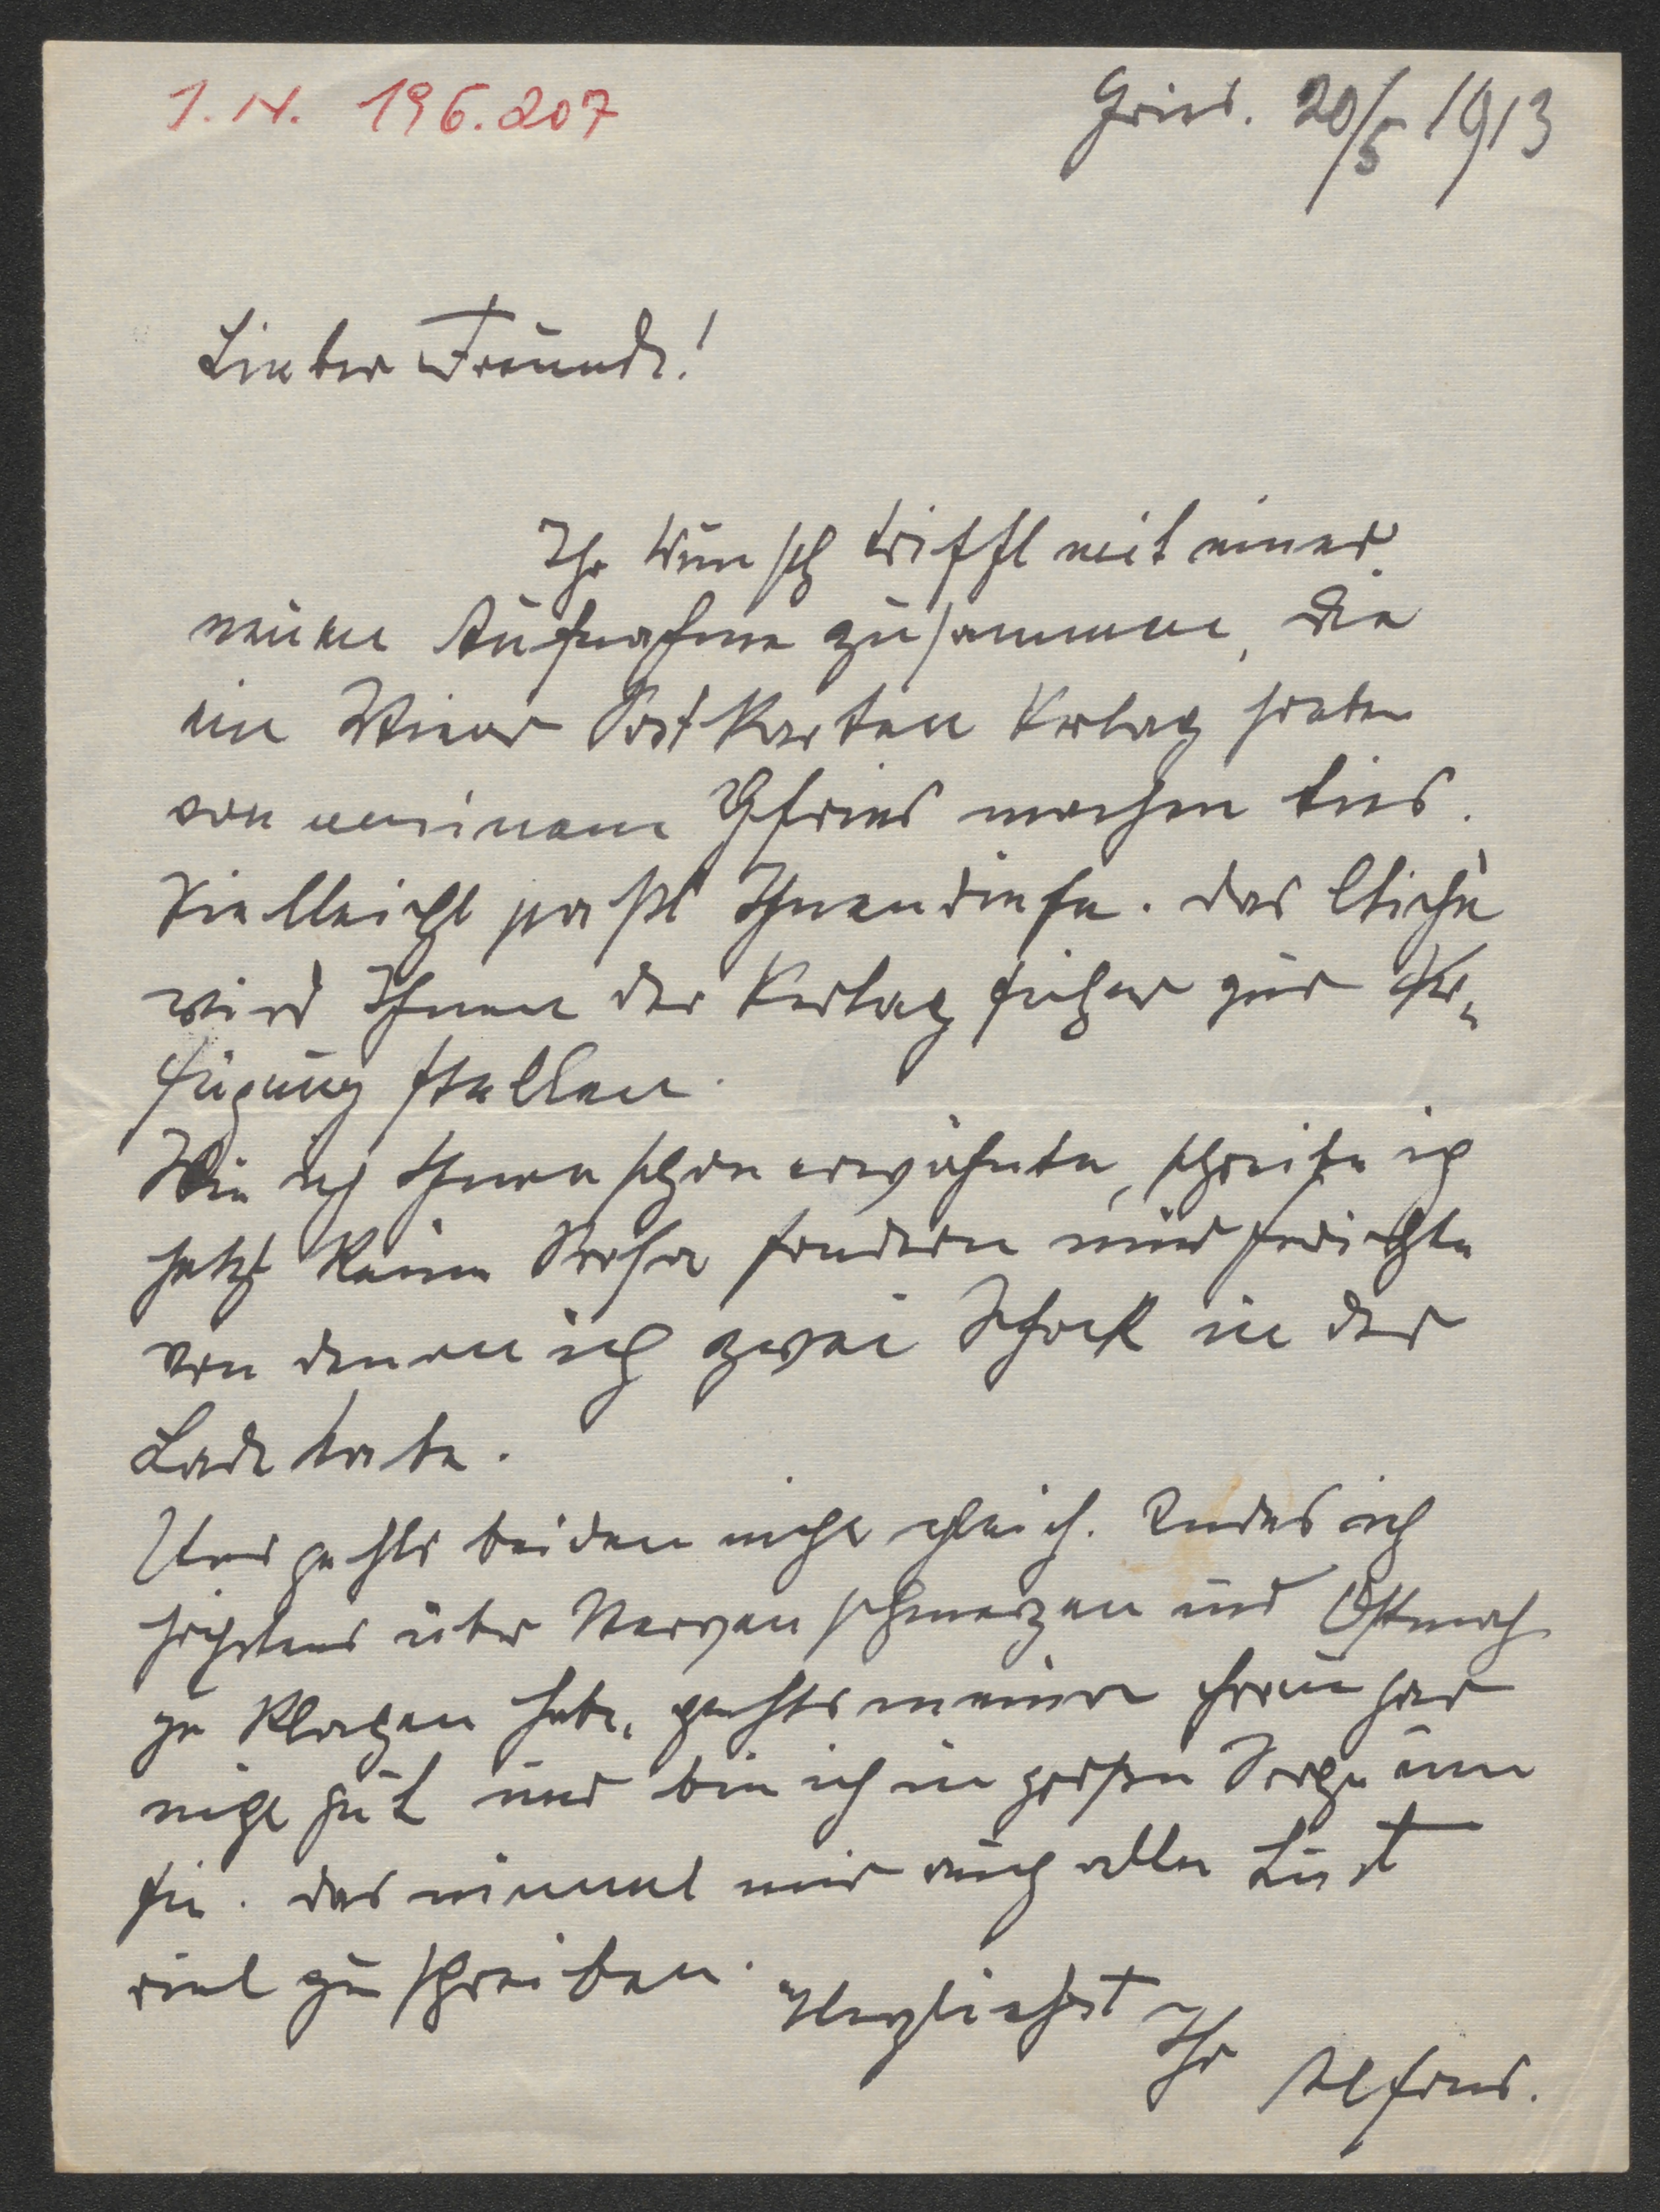 I. N. 196.207
Gries. 20/5 1913
Lieber Freund!
Ihr Wunsch trifft mit einer
neuen Aufnahme zusammen, die
ein Wiener Postkarten Verlag soeben
von meinem Gfries machen ließ.
Vielleicht paßt Ihnen diese. Das Cliché
wird Ihnen der Verlag sicher zur Ver-
fügung stellen.
Wie ich Ihnen schon erwähnte, schreibe ich
jetzt keine Prosa sondern nur Gedichte
von denen ich zwei Schock in der
Lade habe.
Uns gehts beiden nicht gleich. Indes ich
höchstens über Nervenschmerzen und
zu klagen habe, gehts meiner Frau gar
nicht gut und bin ich in großer Sorge um
sie. Das nimmt mir auch alle Lust
viel zu schreiben.
Herzlichst
Ihr